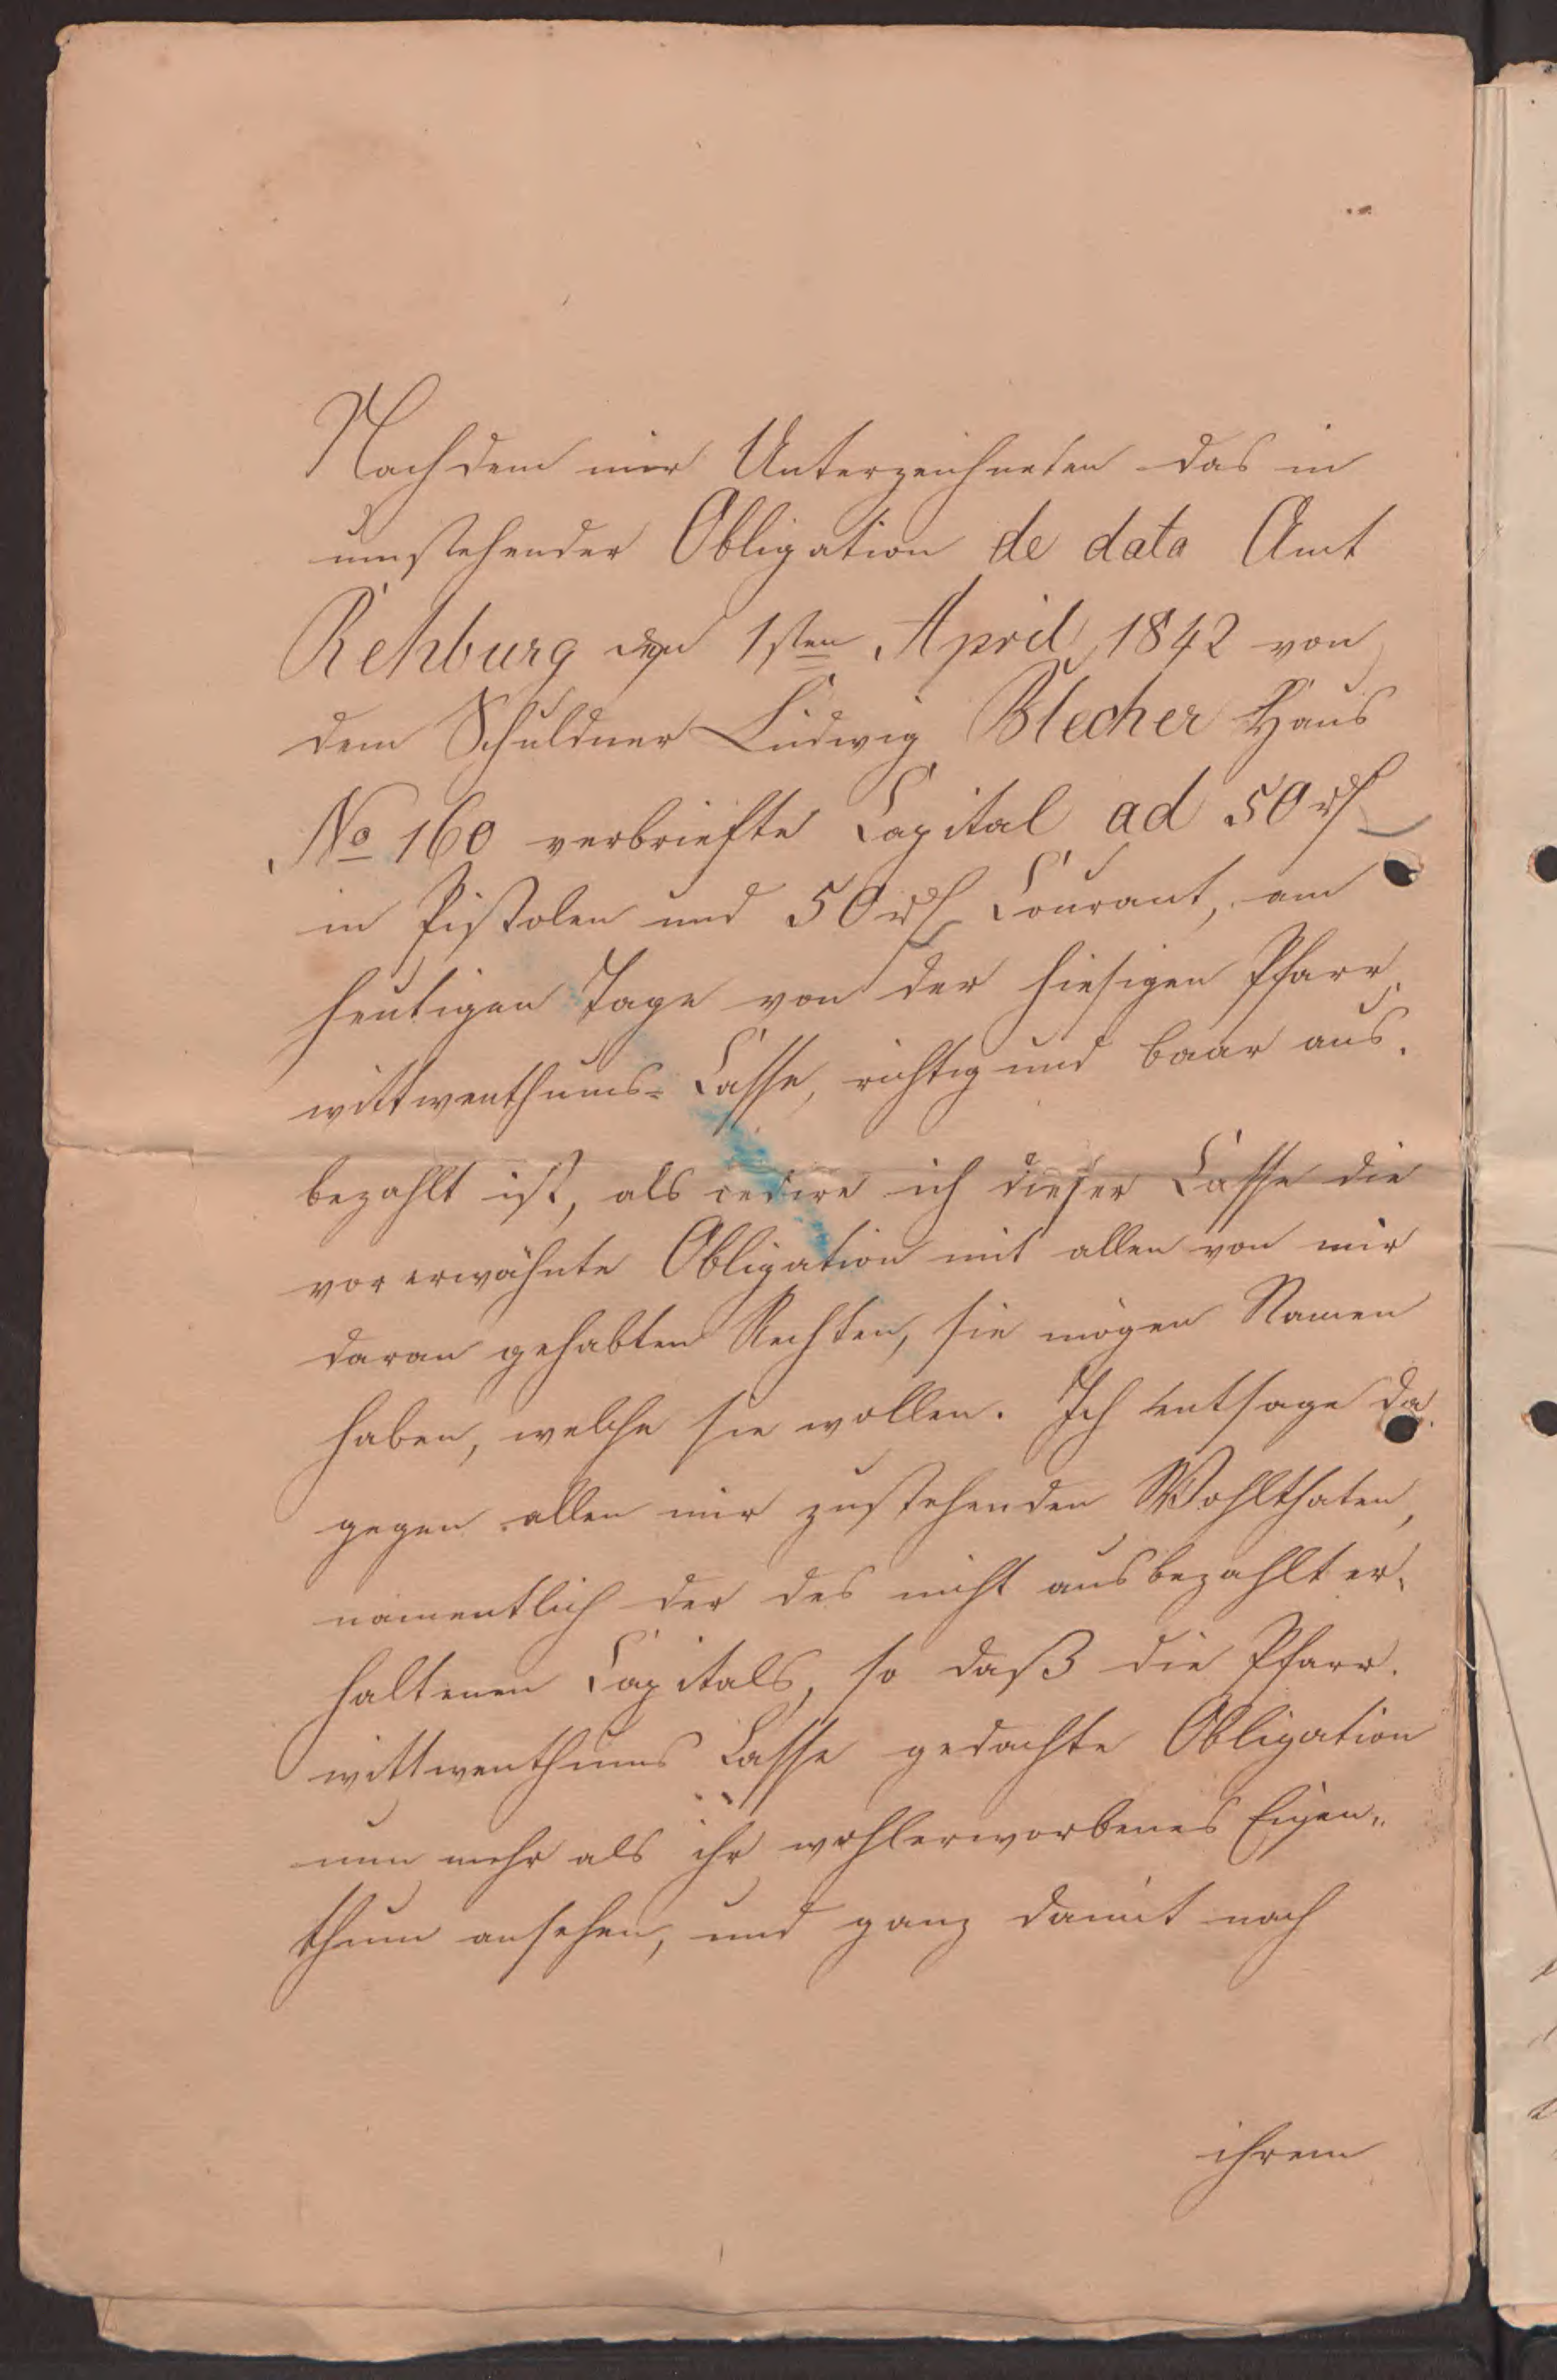 Nachdem mir Unterzeichneten das in
umstehender Obligation de data Amt
Rehburg den 1sten April 1842 von
dem Schuldner Ludwig Blecher Haus
No 160 verbriefte Capital ad 50 rℓ
in Pistolen und 50 rℓ Courant, am
heutigen Tage von der hiesigen Pfarr-
wittwenthums-Casse, richtig und baar aus-
bezahlt ist, als cedire ich dieser Casse die
vorerwähnte Obligation mit allen von mir
daran gehabten Rechten, sie mögen Namen
haben, welche sie wollen. Ich entsage da-
gegen allen mir zustehenden Wohlthaten,
namentlich der des nicht ausbezahlt er-
haltenen Capitals, so daß die Pfarr-
wittwenthums Casse gedachte Obligation
nun mehr als ihr wohlerworbenes Eigen-
thum ansehen, und ganz damit nach
ihrem